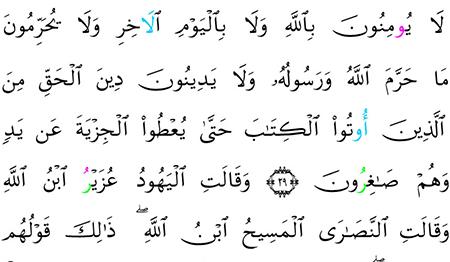 لَا يُومِنُونَ بِاللَّهِ وَلَا بِالْيَوْمِ اِ۬لَاخِرِ وَلَا يُحَرِّمُونَ
مَا حَرَّمَ اَللَّهُ وَرَسُولُهُۥ وَلَا يَدِينُونَ دِينَ اَلْحَقِّ مِنَ
اَلَّذِينَ أُوتُواْ الْكِتَٰبَ حَتَّىٰ يُعْطُواْ الْجِزْيَةَ عَنْ يَدٖ
وَهُمْ صَٰغِرُونَ ۝٢٩ وَقَالَتِ اِلْيَهُودُ عُزَيْرُ اُ۪بْنُ اُللَّهِ
وَقَالَتِ اِلنَّصَٰرَى اَلْمَسِيحُ اُبْنُ اُللَّهِۖ ذَٰلِكَ قَوْلُهُم